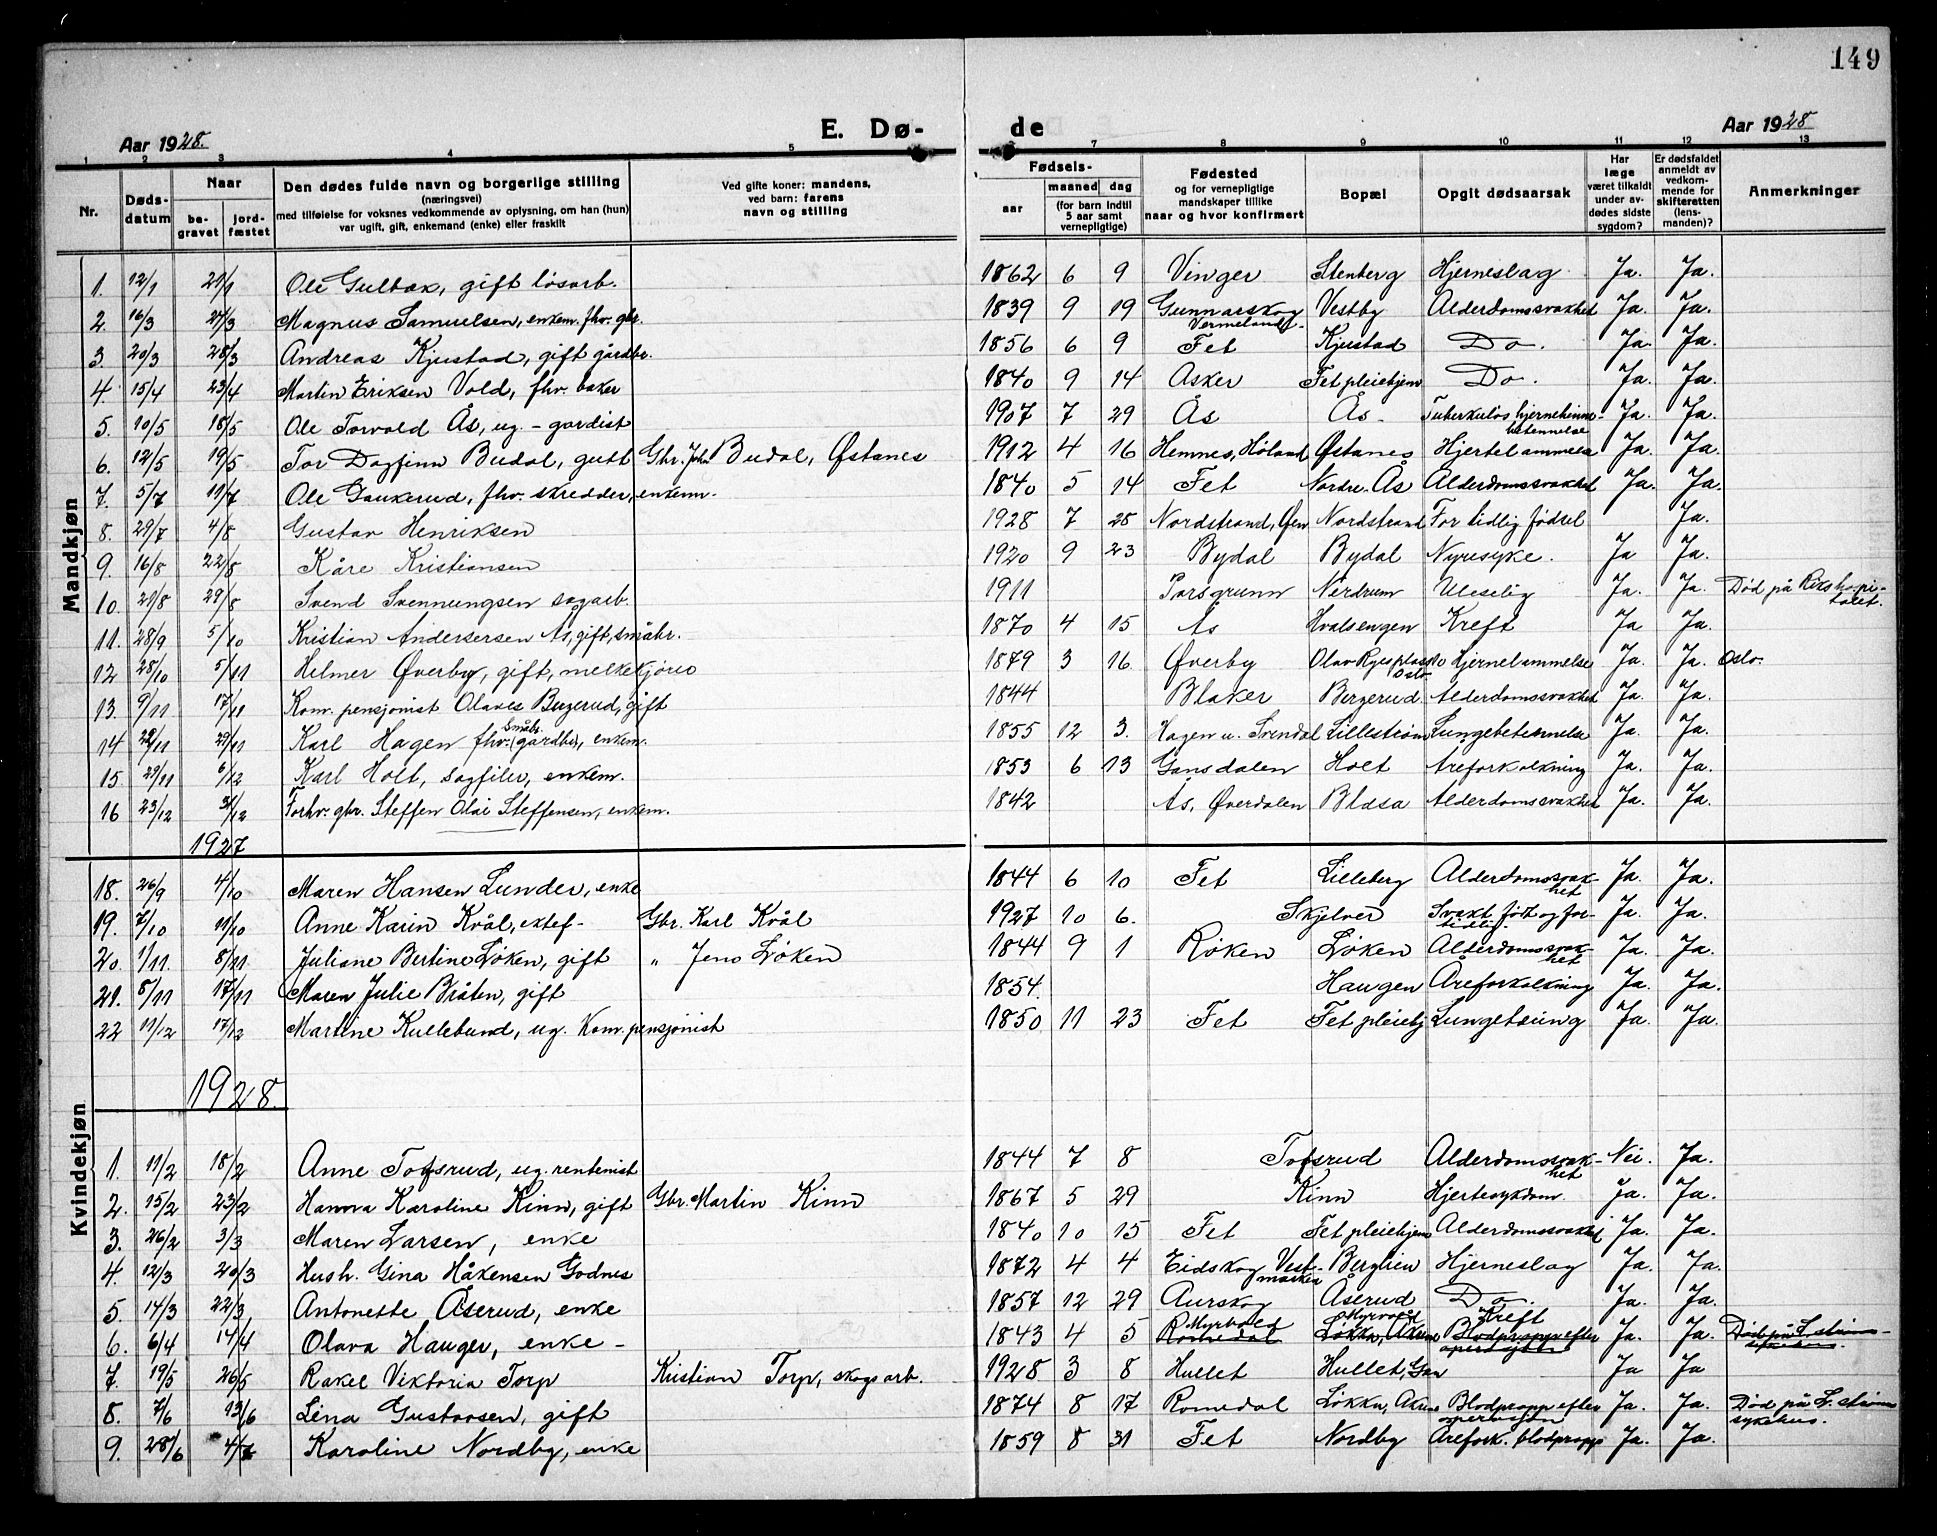 149
Aar 1928.
E. Dø-
de
Aar 1928
1 2 3 4 5 6 7 8 9 10 11 12 13
Nr.
Døds-
datum
Naar
be-
gravet
jord-
fæstet
Den dødes fulde navn og borgerlige stilling
(næringsvei)
med tilføielse for voksnes vedkommende av oplysning, om han (hun)
var ugift, gift, enkemand (enke) eller fraskilt
Ved gifte koner: mandens,
ved barn: farens
navn og stilling
Fødsels-
aar
maaned dag
(for barn indtil
5 aar samt
vernepligtige)
Fødested
og for vernepligtige
mandskaper tillike
naar og hvor konfirmert
Bopæl
Opgit dødsaarsak
Har
læge
været tilkaldt
under av-
dødes sidste
sygdom?
Er dødsfaldet
anmeldt av
vedkom-
mende for
skifteretten
(lens-
manden)?
Anmerkninger
Mandkjøn
1. 12/1 21/1 Ole Gulbæk, gift løsarb. 1862 6 9 Vinger Stenberg Hjerneslag Ja. Ja.
2. 16/3 24/3 Magnus Samuelsen, enkem. fhv. gbr. 1839 9 19 Gunnarskog Vermeland Vestby Alderdomssvakhet Ja. Ja.
3. 20/3 28/3 Andreas Kjustad, gift gårdbr. 1856 6 9 Fet Kjustad Do. Ja. Ja.
4. 15/4 23/4 Martin Eriksen Vold, fhv. baker 1840 9 14 Asker Fet pleiehjem Do. Ja. Ja.
5. 10/5 18/5 Ole Torvald Ås, ug. - gardist 1907 7 29 Ås Ås - Tuberkuløs hjernehinne-betennelse Ja. Ja.
6. 12/5 19/5 Tor Dagfinn Budal, gutt Gbr. John Budal, Østanes 1912 4 16 Hemnes, Høland Østanes Hjertelammelse Ja. Ja.
7. 5/7 11/7 Ole Gaukerud, fhv. skredder, enkem. 1840 5 14 Fet Nordre Ås Alderdomssvakhet Ja. Ja.
8. 29/7 4/8 Gustav Henriksen 1928 7 28 Nordstrand, Øien Nordstrand For tidlig fødsel Ja.
9. 16/8 22/8 Kåre Kristiansen 1920 9 23 Bydal Bydal Nyresyke. Ja Ja.
10. 21/8 29/8 Svend Svennungsen sagarb. 1911 Porsgrunn Nerdrum Uleselig Ja. Ja. Død på Rikshospi-talet.
11. 28/9 5/10 Kristian Andersersen Ås, gift, småbr. 1870 4 15 Ås Hvalsengen Kreft Ja Ja.
12 28/10 5/11 Helmer Øverby, gift, melkekjører 1879 3 16 Øverby Olav Ryes plass Oslo Hjernelammelse Ja. Ja. Oslo.
13. 9/11 17/11 Kom. pensjonist Olaves Bergerud, gift 1844 Blaker Bergerud Alderdomssvakhet Ja. Ja.
14 22/11 29/11 Karl Hagen fhv. (gårdbr, Småbr. enkem. 1855 12 3. Hagen u. Svendal Lillestrøm Lungebetennelse Ja. Ja.
15. 29/11 6/12 Karl Holt, sagfiler, enkem. 1853 6 13 Gansdalen Holt Åreforkalkning Ja. Ja.
16 23/12 31/12 Forhv. gbr. Steffen Olai Steffensen, enkem. 1842 Ås, Øverdalen Blåsa Alderdomssvakhet Ja. Ja.
1927
Kvindekjøn
18. 26/9 4/10 Maren Hansen Lunder, enke 1844 6 10 Fet Lilleberg Alderdomssvak-het Ja. Ja.
19. 7/10 11/10 Anne Karin Kvål, ektef- Gbr. Karl Kvål 1927 10 6. Skjelver Svakt født og for-tidlig. Ja. Ja.
20. 1/11. 8/11 Juliane Bertine Løken, gift „ Jens Løken 1844 9 1 Røken Løken Alderdomssvak-het Ja. Ja.
21. 8/11 17/11 Maren Julie Bråten, gift 1854. Haugen Åreforkalkning Ja. Ja.
22 11/12 17/12 Martine Kullebund, ug. Kom. pensjonist 1850 11 23 Fet Fet pleiehj Lungetæring Ja. Ja.
1928.
1. 11/2 18/2 Anne Tofsrud, ug. rentenist 1844 7 8 Tofsrud Alderdomssvak-het Nei. Ja.
2. 15/2 23/2 Hanna Karoline Kinn, gift Gbr. Martin Kinn 1867 5 29 Kinn Hjertesykdom. Ja. Ja.
3. 26/2 3/3 Maren Larsen, enke 1840 10 15 Fet Fet pleiehjem Alderdomssvakhet Ja. Ja.
4. 12/3 20/3 Hush. Gina Håkensen Godnes 1872 4 4 Eidskog Vest-marken Berglien Hjerneslag Ja. Ja.
5 14/3 22/3 Antonette Åserud, enke 1857 12 29 Aurskog Åserud Do. Ja. Ja.
6. 6/4 14/4 Olava Hauger, enke - 1843 4 5 Myrvold Romedal Myrvold Løkka, Åkrene Kreft Blodpropp efter operasjon Ja. Ja. Død på L. strøm sykehus.
7. 19/5 26/5 Rakel Viktoria Torp Kristian Torp, skogsarb. 1928 3 8 Hullet Hullet, Gan Ja Ja
8. 7/6 13/6 Lina Gustavsen, gift 1874 8 17 Romedal Løkka, Åkrene Blodpropp efter operasjon Ja. Ja. Død på L. strøm sykehus.
9. 28/6 4/7 Karoline Nordby, enke 1859 8 31 Fet Nordby Årefork. blodpropp Ja. Ja.